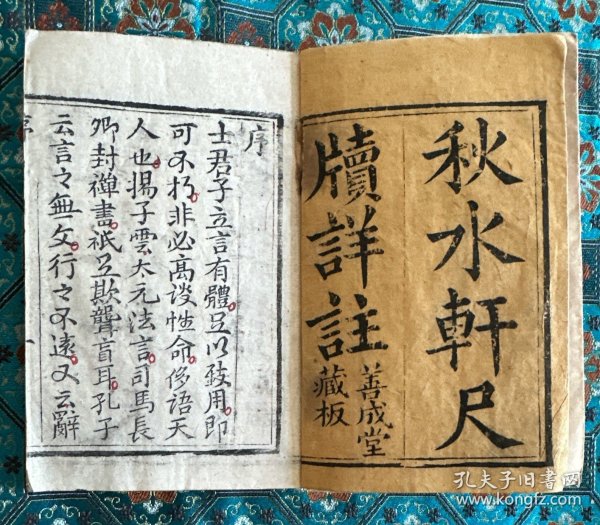 秋水軒尺
牘詳註
善成堂
藏板
序
士君子立言有體足以致用即
可不朽非必高談性命侈語天
人也揚子雲太元法言司馬長
卿封禪書祇足欺聾盲耳孔子
云言之無文行之不遠又云辭
孔夫子旧书网
www.kongfz.com